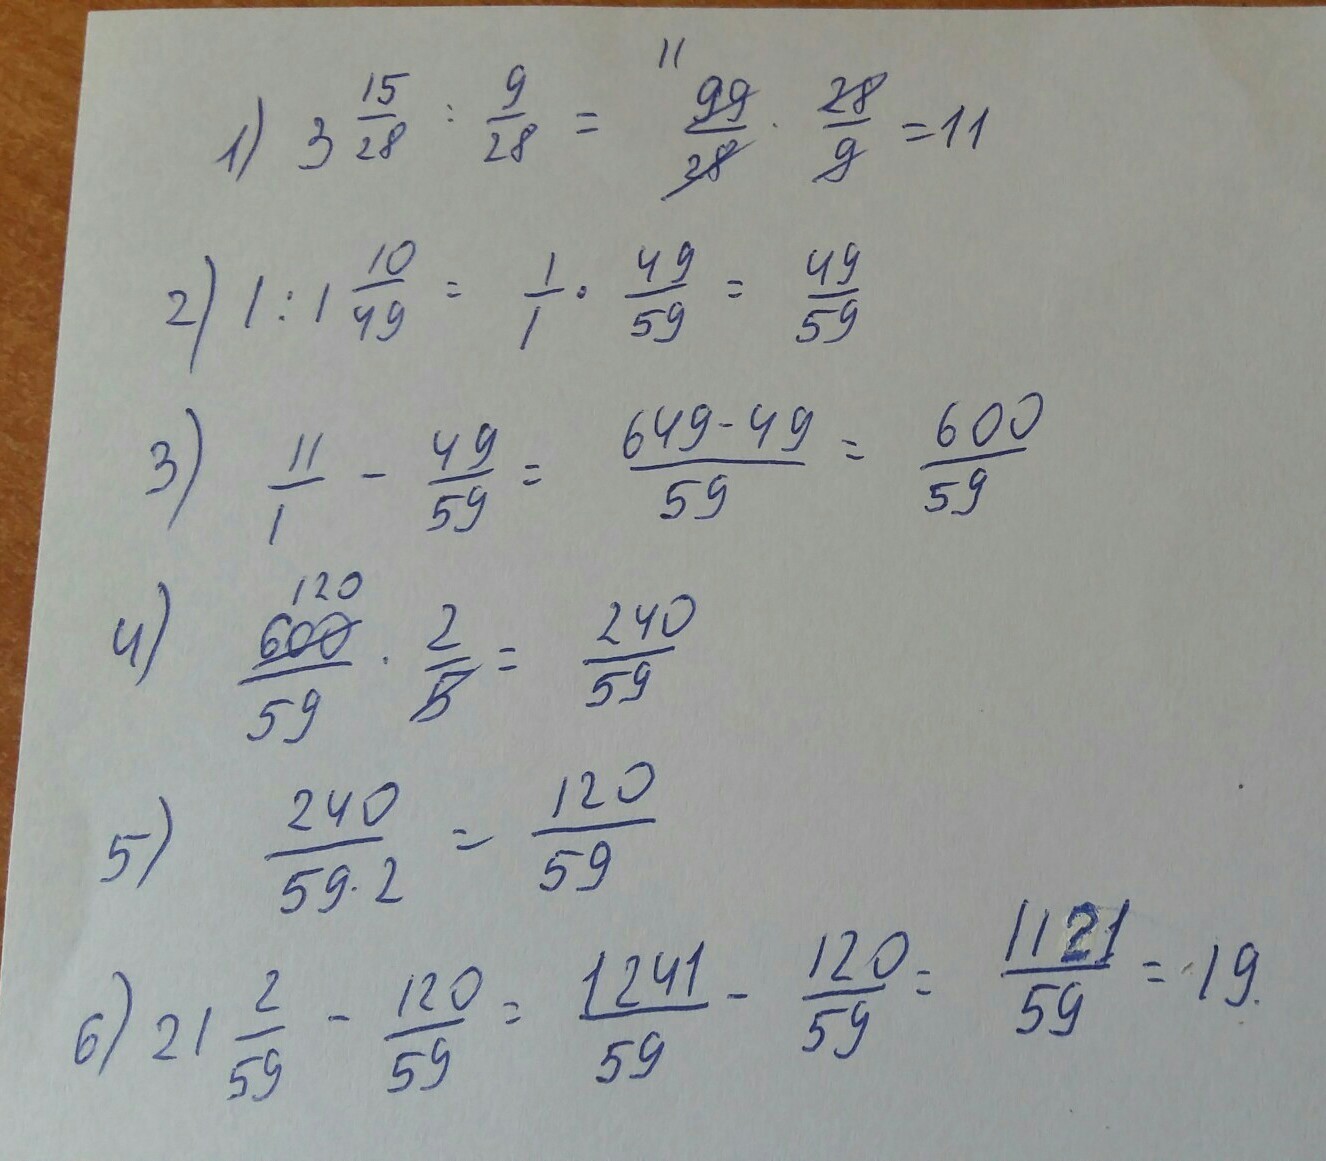 1) 3 15/28 : 9/28 = 11 99/28 · 28/9 = 11
2) 1 : 1 10/49 = 1/1 · 49/59 = 49/59
3) 11/1 - 49/59 = 649-49/59 = 600/59
4) 120 600/59 · 2/5 = 240/59
5) 240/59·2 = 120/59
6) 21 2/59 - 120/59 = 1241/59 - 120/59 = 1121/59 = 19.